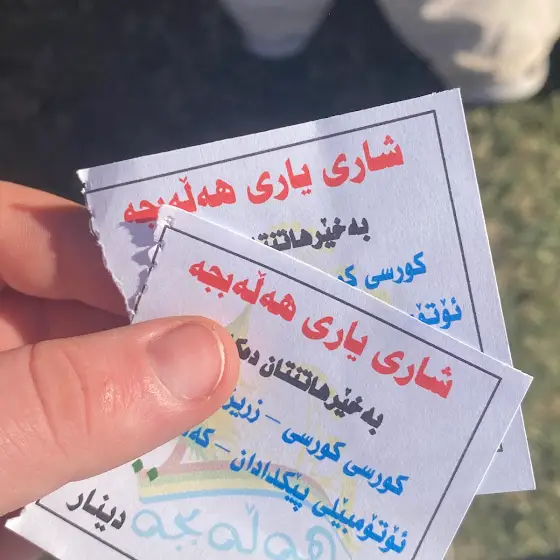 شاری یاری هەڵەبجە
بەخێرهاتنتان
کورسی
شاری یاری هەڵەبجە
بەخێرهاتنتان
کورسی کورسی –
ئۆتۆمبێلی پێکدادان –
دینار
هەڵەبجە